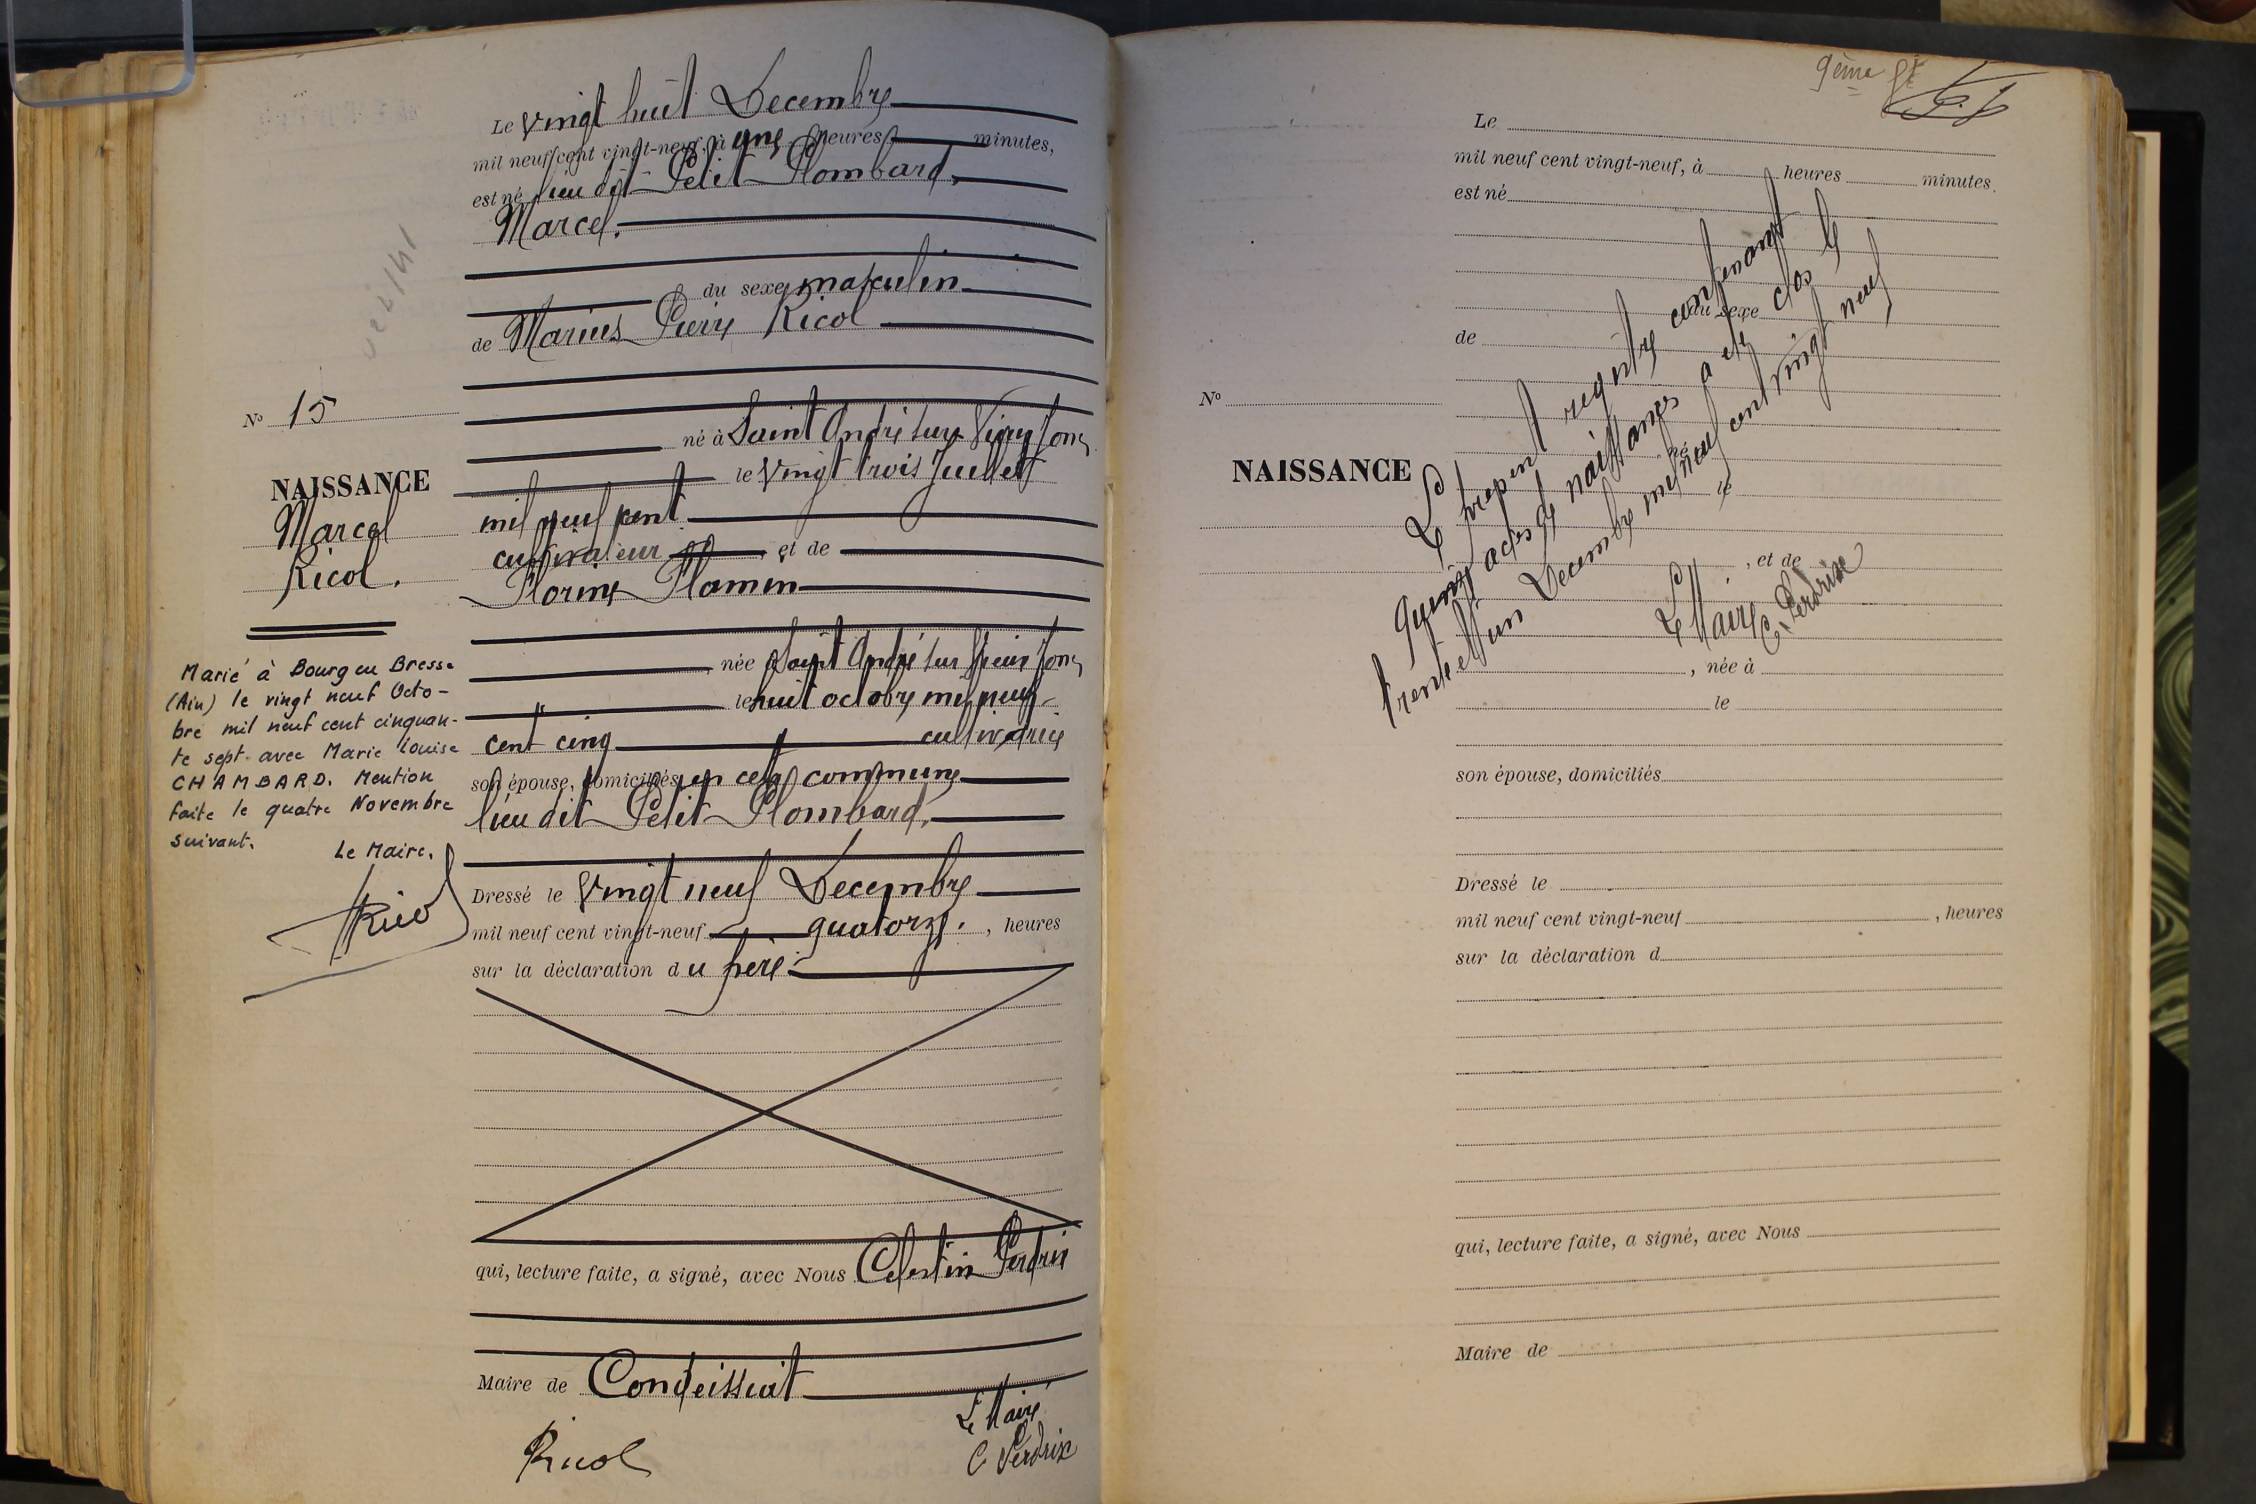 Le vingt huit Decembre
mil neuf cent vingt-neuf, à une heures minutes,
est né lieu dit Petit Plombard,
Marcel.
du sexe masculin
de Marius Pierre Ricol
né à Saint André sur Vieux Jonc
le vingt trois Juillet
mil neuf cent
cultivateur, et de
Florine Flamin
née à Saint André sur Vieux Jonc
le huit octobre mil neuf
cent cinq cultivatrice
son épouse, domiciliés en cette commune
lieu dit Petit Plombard,
Dressé le vingt neuf Decembre
mil neuf cent vingt-neuf quatorze, heures
sur la déclaration du père
qui, lecture faite, a signé, avec Nous Celestin Perdrix
Maire de Condeissiat
Ricol
Le Maire
C Perdrix
No 15
NAISSANCE
Marcel
Ricol.
Marié à Bourg en Bresse
(Ain) le vingt neuf Octo-
bre mil neuf cent cinquan-
te sept avec Marie Louise
CHAMBARD. Mention
faite le quatre Novembre
suivant.
Le Maire,
Ricol
9ème
Le
mil neuf cent vingt-neuf, à heures minutes.
est né
du sexe
de
No
NAISSANCE
né
le
, et de
, née à
le
son épouse, domiciliés
Dressé le
mil neuf cent vingt-neuf , heures
sur la déclaration d
qui, lecture faite, a signé, avec Nous
Maire de
Le present registre contenant
quinze actes de naissances a été clos le
trente et un Decembre mil neuf cent vingt neuf
Le Maire
C. Perdrix